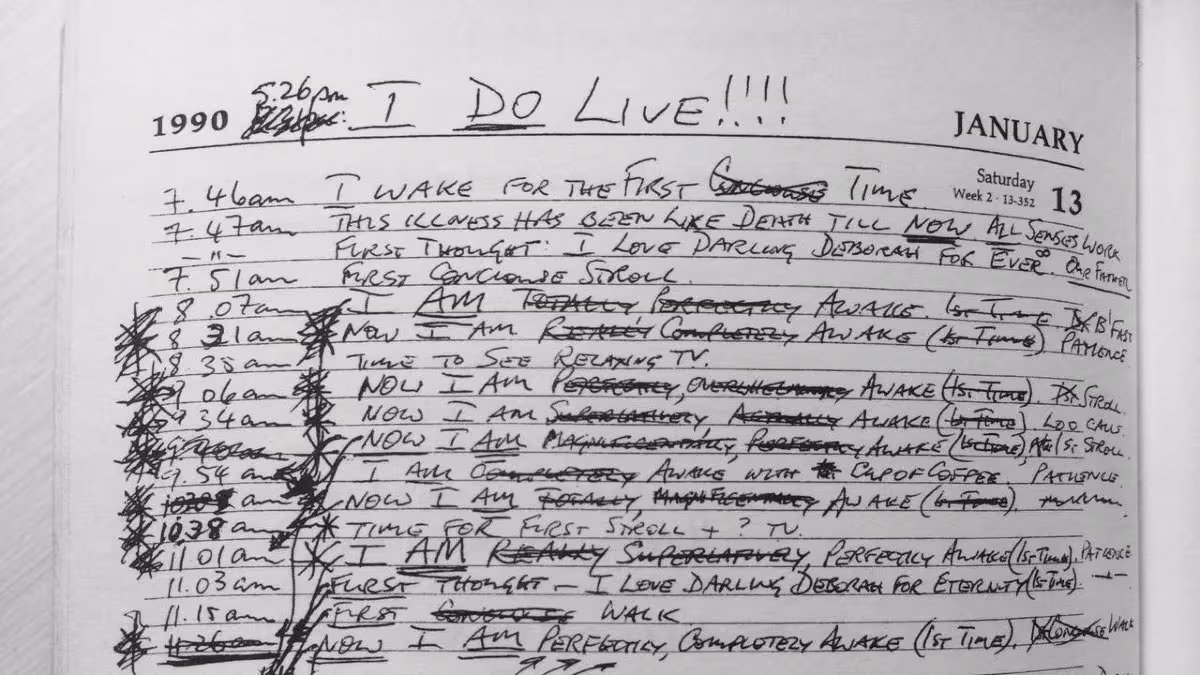 5.26pm I DO LIVE!!!!
1990 JANUARY
Saturday
Week 2 · 13-352 13
7.46am I WAKE FOR THE FIRST TIME.
7.47am THIS ILLNESS HAS BEEN LIKE DEATH TILL NOW ALL SENSES WORK
-"- FIRST THOUGHT: I LOVE DARLING DEBORAH FOR EVER∞. OUR FATHER
7.51am FIRST CONCIOUSE STROLL.
8.07am I AM TOTALLY PERFECTLY AWAKE. 1ST TIME. B'FAST
8 31am NOW I AM REALLY COMPLETELY AWAKE (1ST TIME) PATIENCE
8 38am TIME TO SEE RELAXING TV.
9 06am NOW I AM PERFECTLY, OVERWHELMINGLY AWAKE (1ST TIME). STROLL.
9 34am NOW I AM SUPERLATIVELY, ACTUALLY AWAKE (1ST TIME). LOO CALL.
NOW I AM MAGNIFICENTLY, PERFECTLY AWAKE (1ST TIME), 1ST. STROLL.
9.54am I AM COMPLETELY AWAKE WITH CUP OF COFFEE. PATIENCE.
am NOW I AM TOTALLY, MAGNIFICENTLY AWAKE (1ST TIME).
10.38am TIME FOR FIRST STROLL + ? TV.
11.01am I AM REALLY SUPERLATIVELY, PERFECTLY AWAKE (1ST TIME). PATIENCE
11.03am FIRST THOUGHT – I LOVE DARLING DEBORAH FOR ETERNITY (1ST TIME).
11.15am FIRST CONCIOUSE WALK
11.26am NOW I AM PERFECTLY, COMPLETELY AWAKE (1ST TIME). CONCIOUSE WALK